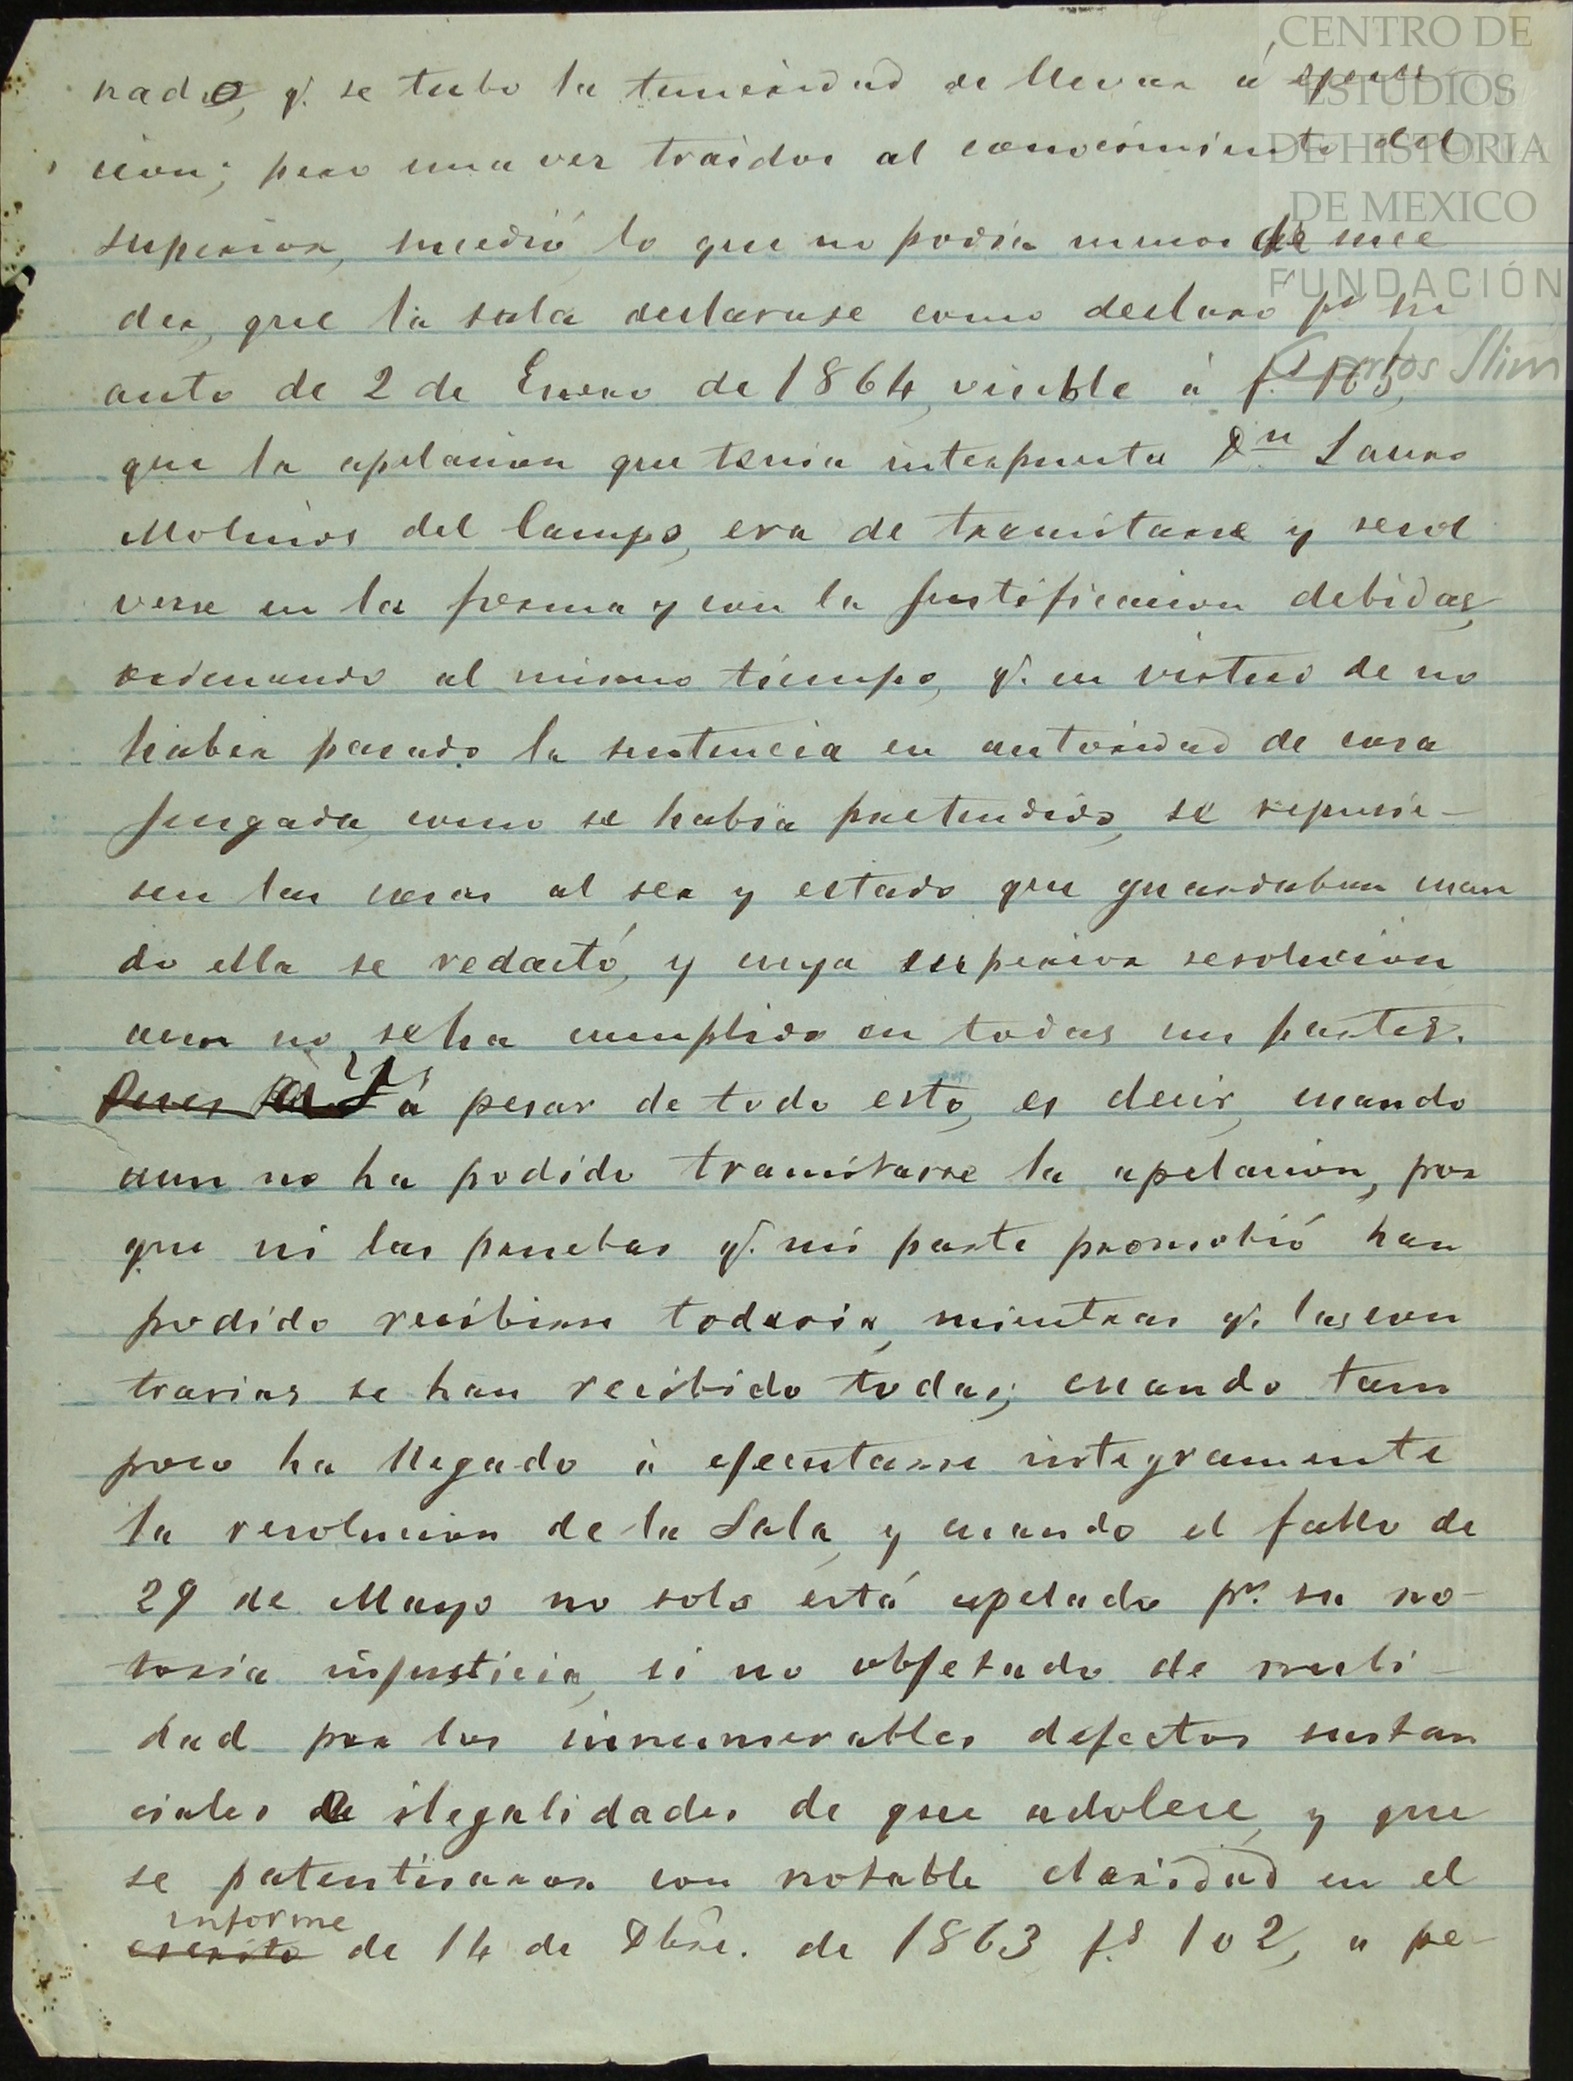 nado, q.e se tubo la temeridad de llevar á ejecu
cion; pero una ves traidos al conocimiento del
superior, sucedió lo que no podia menos de suce
der, que la sala declarase como declaro p.r su
auto de 2 de Enero de 1864, visible á f.s 165,
que la apelacion que tenia interpuesta D.n Lauro
Molinos del Campo, era de tramitarse y resol
verse en la forma y con la justificacion debidas,
ordenando al mismo tiempo, q.e en virtud de no
haber pasado la sentencia en autoridad de cosa
jusgada, como se habia pretendido, se repusie-
sen las cosas al ser y estado que guardaban cuan
do ella se redactó, y cuya superior resolucion
aun no se ha cumplido en todas sus partes.
Pues á pesar de todo esto, es decir, cuando
aun no ha podido tramitarse la apelacion, por
que ni las pruebas q.e mi parte promobió han
podido recibirse todavia, mientras q.e las con
trarias se han recibido todas; cuando tam
poco ha llegado á ejecutarse integramente
la resolucion de la Sala, y cuando el fallo de
29 de Mayo no solo está apelado p.r su no-
toria injusticia, si no objetado de nuli-
dad por los innumerables defectos sustan
ciales de ilegalidades de que adolece, y que
se patentisaron con notable claridad en el
informe
escrito de 14 de Dbre. de 1863 f.s 102, a pe-
CENTRO DE
ESTUDIOS
DE HISTORIA
DE MEXICO
FUNDACIÓN
Carlos Slim